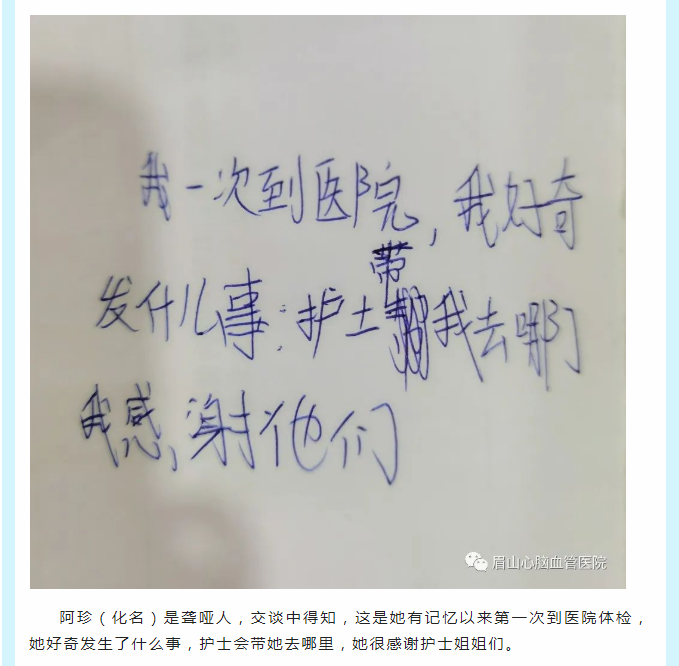 我一次到医院,我好奇
发什儿事:护士带我去哪
我感,谢他们
眉山心脑血管医院
阿珍(化名)是聋哑人,交谈中得知,这是她有记忆以来第一次到医院体检,
她好奇发生了什么事,护士会带她去哪里,她很感谢护士姐姐们。